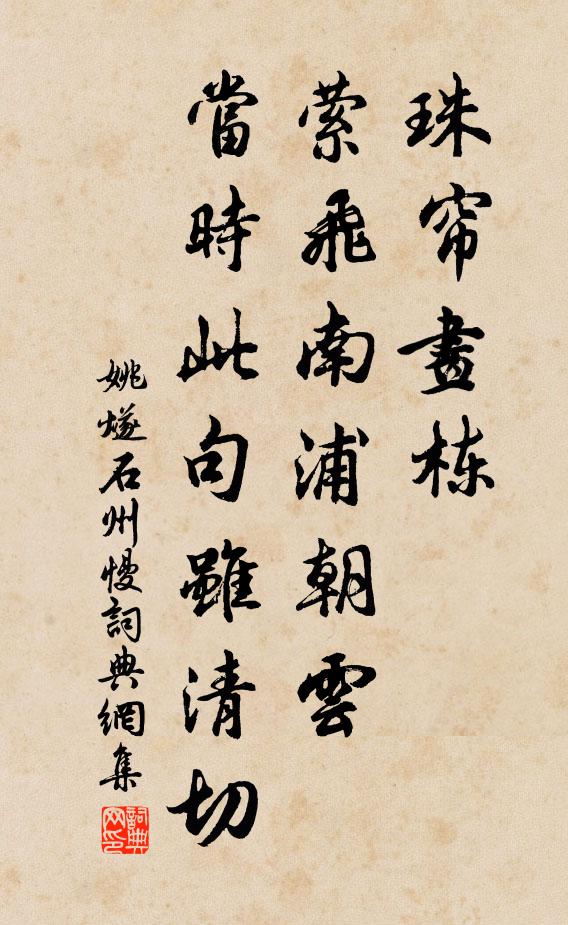 珠帘畫栋
萦飛南浦朝雲
當時此句雖清切
姚燧石州慢詞典網集
詞典网印